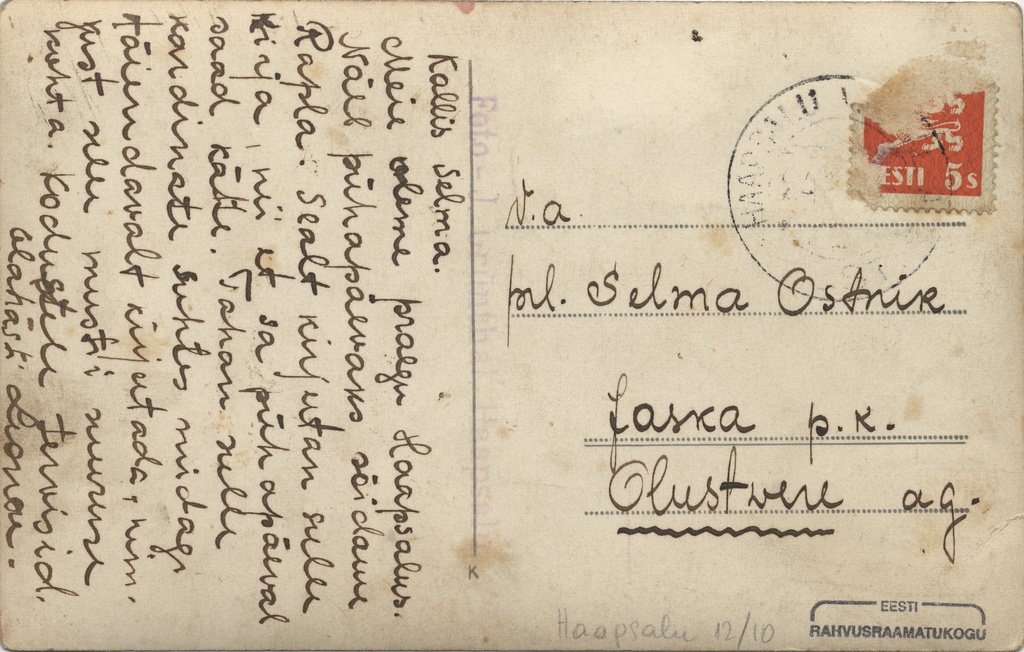 Kallis Selma.
Meie oleme praegu Haapsalus.
Näeb pühapäevaks sõidame
Rapla. Sealt kirjutan sulle
kirja, nii et sa pühapäeval
saad kätte. Tahan sulle
kardinate suhtes midagi
täiendavalt kirjutada, nim.
just selle musti suuruse
kohta. Kodustele tervisid.
alahästi Leona.
V.a.
prl. Selma Ostnik
Jaska p.k.
Olustvere ag.
EESTI 5s
HAAPSALU
K
Haapsalu 12/10
EESTI
RAHVUSRAAMATUKOGU